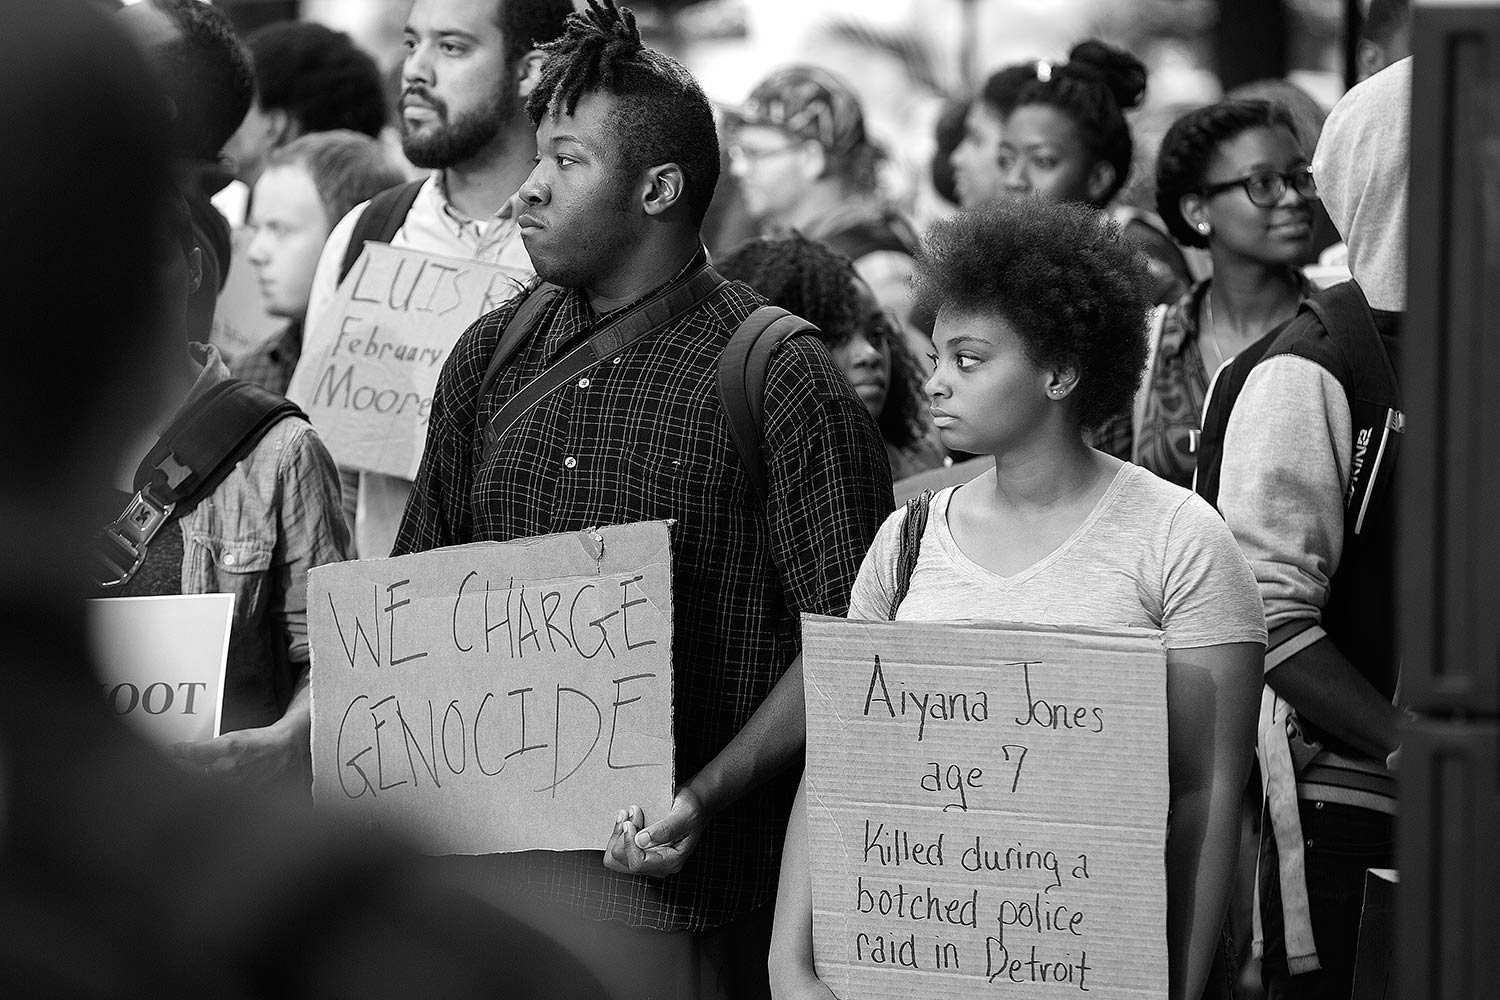 LUIS R
February
Moore
WE CHARGE
GENOCIDE
OOT
Aiyana Jones
age 7
Killed during a
botched police
raid in Detroit